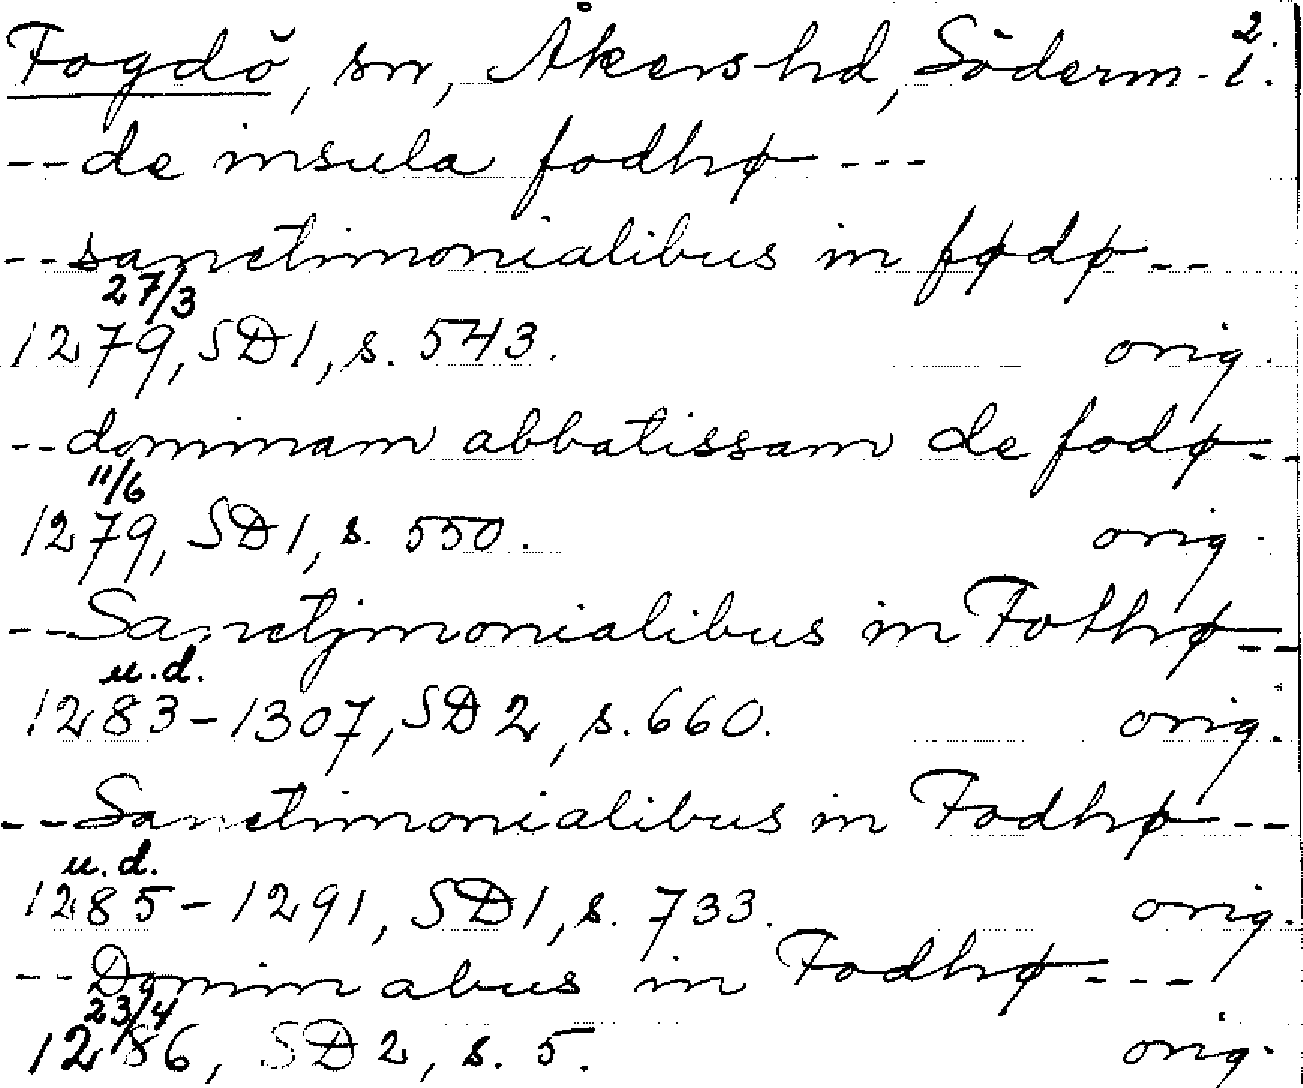 Fogdö, sn, Åkers hd, Söderm. 2. 1.
-- de insula fodhø ---
-- sanctimonialibus in fødø --
27/3
1279, SD1, s. 543. orig.
-- dominam abbatissam de fodø --
11/6
1279, SD1, s. 550. orig.
-- Sanctjmonialibus in Fothø --
u.d.
1283-1307, SD2, s. 660. orig.
-- Sanctimonialibus in Fodhø --
u.d.
1285-1291, SD1, s. 733. orig.
-- Dominabus in Fodhø ---
23/4
1286, SD2, s. 5. orig.